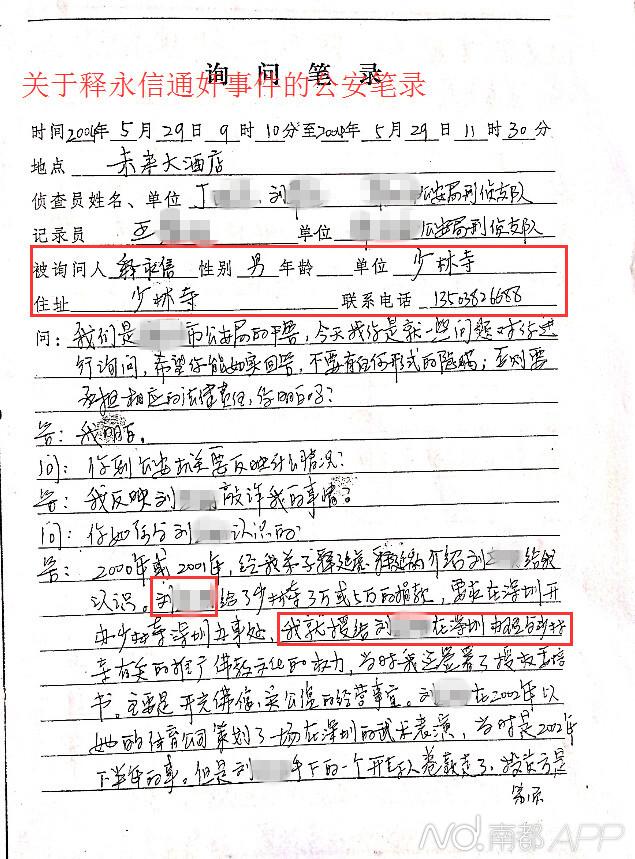 询问笔录
关于释永信通奸事件的公安笔录
时间2004年5月29日9时10分至2004年5月29日11时30分
地点 未来大酒店
侦查员姓名、单位 丁 、刘 公安局刑侦支队
记录员 王 单位 公安局刑侦支队
被询问人 释永信 性别 男 年龄 单位 少林寺
住址 少林寺 联系电话 13503826688
问：我们是 市公安局的干警，今天我们是就一些问题对你进
行询问，希望你能如实回答，不要有任何形式的隐瞒；否则要
承担相应的法律责任，你明白吗？
答：我明白。
问：你到公安机关要反映什么情况？
答：我反映刘 敲诈我的事情？
问：你如何与刘 认识的
答：2000年或2001年，经我弟子释延 介绍刘 给我
认识。刘 给了少林寺3万或5万的捐款，要在深圳开
办少林寺深圳办事处，我就授给刘 在深圳办理与少林
寺有关的推广佛教文化的权力，当时我还签署了授权委托
书。主要是开光佛信，卖公德的经营事宜。刘 在2002年以
她的体育公司策划了一场在深圳的武术表演，当时是2002年
下半年的事。但是刘 手下的一个开车人卷款走了，投资方是
第 页
ND.南都APP